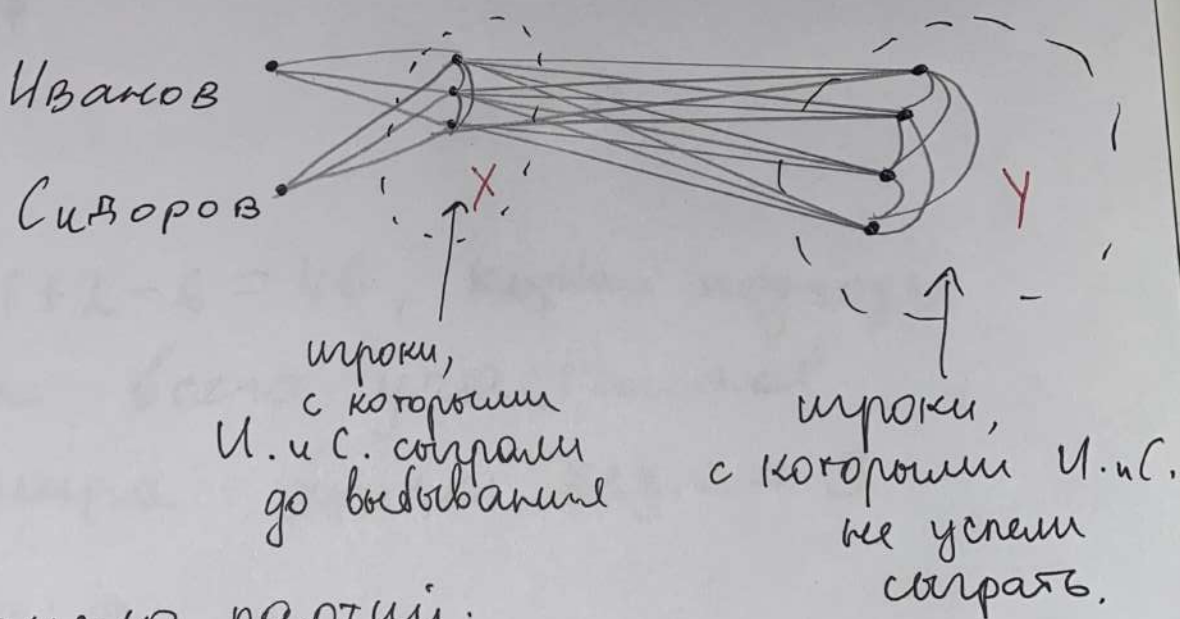 Иванов
Сидоров
X
Y
игроки,
с которыми
И. и С. сыграли
до выбывания
игроки,
с которыми И. и С.
не успели
сыграть.
партий.